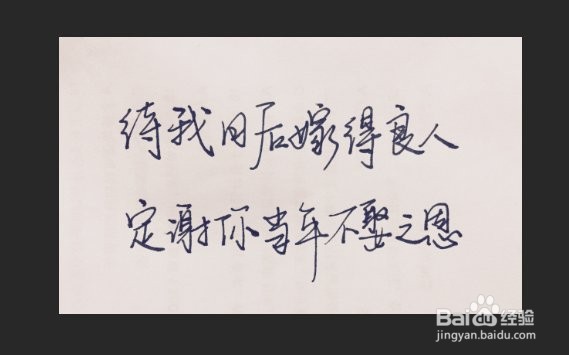 待我日后嫁得良人
定谢你当年不娶之恩
Baidu经验
jingyan.baidu.com